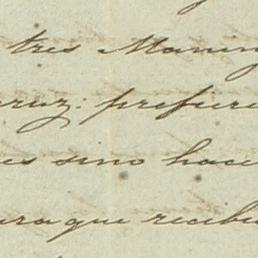 tres Marin
cruz: prefiere
es sino hace
ara que recibi